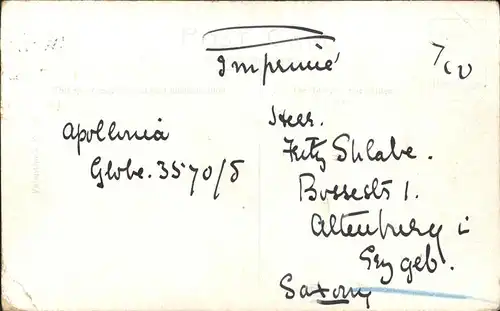 Imprimé
Apollonia
Globe. 3570/5
Herr.
Fritz Shlabe.
Bossestr 1.
Altenburg i
Erzgeb.
Saxony